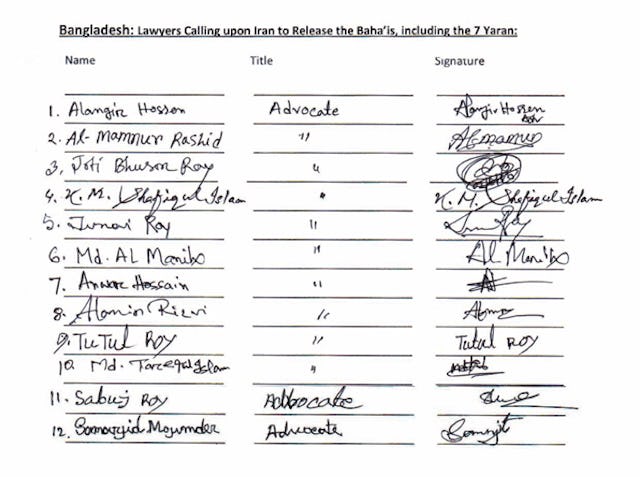 Bangladesh: Lawyers Calling upon Iran to Release the Baha'is, including the 7 Yaran:
Name Title Signature
1. Alangir Hossen Advocate Alangir Hossen
2. Al-Mamnur Rashid " Almamun
3. Joti Bhuson Roy "
4. K. M. Shafiqul Islam " K. M. Shafiqul Islam
5. Roy "
6. Md. AL Manibo " Al Manibo
7. Anwar Hossain "
8. Alamin Rizvi "
9. TUTUL ROY " Tutul ROY
10. Md. Tarequl Islam "
11. Sabuj Roy Advocate
12. Somarjid Mojumder Advocate Somrjit